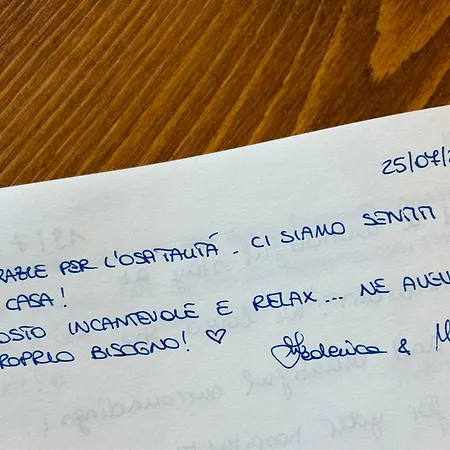 25/07/2
RAZIE PER L'OSPITALITÁ. CI SIAMO SENTITI
CASA!
OSTO INCANTEVOLE E RELAX... NE AVEV
ROPRIO BISOGNO! ♡
Federica & M